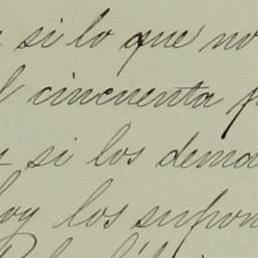 si lo que no
cincuenta
si los dema
los supon